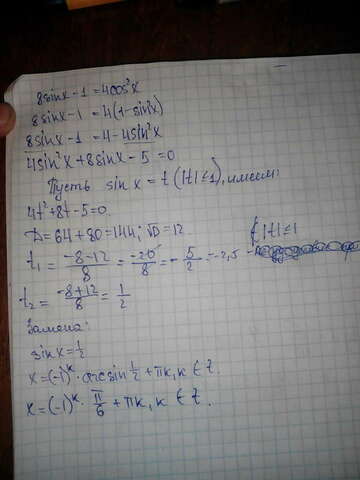 8sinx - 1 = 4cos²x
8sinx - 1 = 4(1 - sin²x)
8sinx - 1 = 4 - 4sin²x
4sin²x + 8sinx - 5 = 0
Пусть sinx = t (|t| ≤ 1), имеем:
4t² + 8t - 5 = 0
D = 64 + 80 = 144; √D = 12
t₁ = (-8-12)/8 = -20/8 = -5/2 = -2,5 - ∉ |t| ≤ 1
t₂ = (-8+12)/8 = 1/2
Замена:
sinx = 1/2
x = (-1)ᵏ · arcsin 1/2 + πk, k ∈ Z.
x = (-1)ᵏ · π/6 + πk, k ∈ Z.